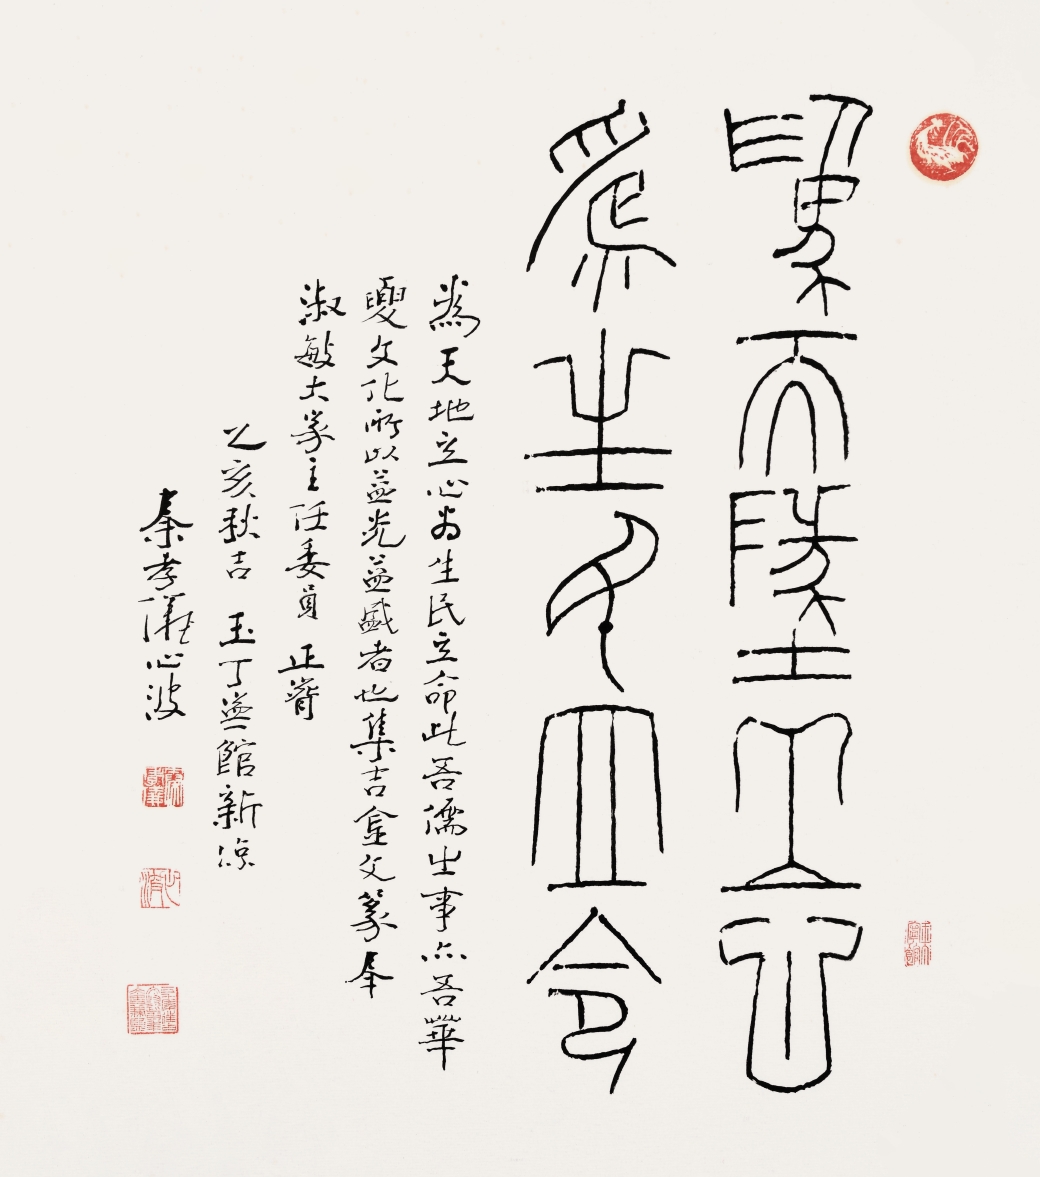 為天墬立心
為生民立命
為天地立心為生民立命此吾儒之事亦吾華
夏文化所以益光益盛者也集吉金文篆奉
淑敏大家主任委員 正簃
乙亥秋吉 玉丁盦館新涼
秦孝儀心波